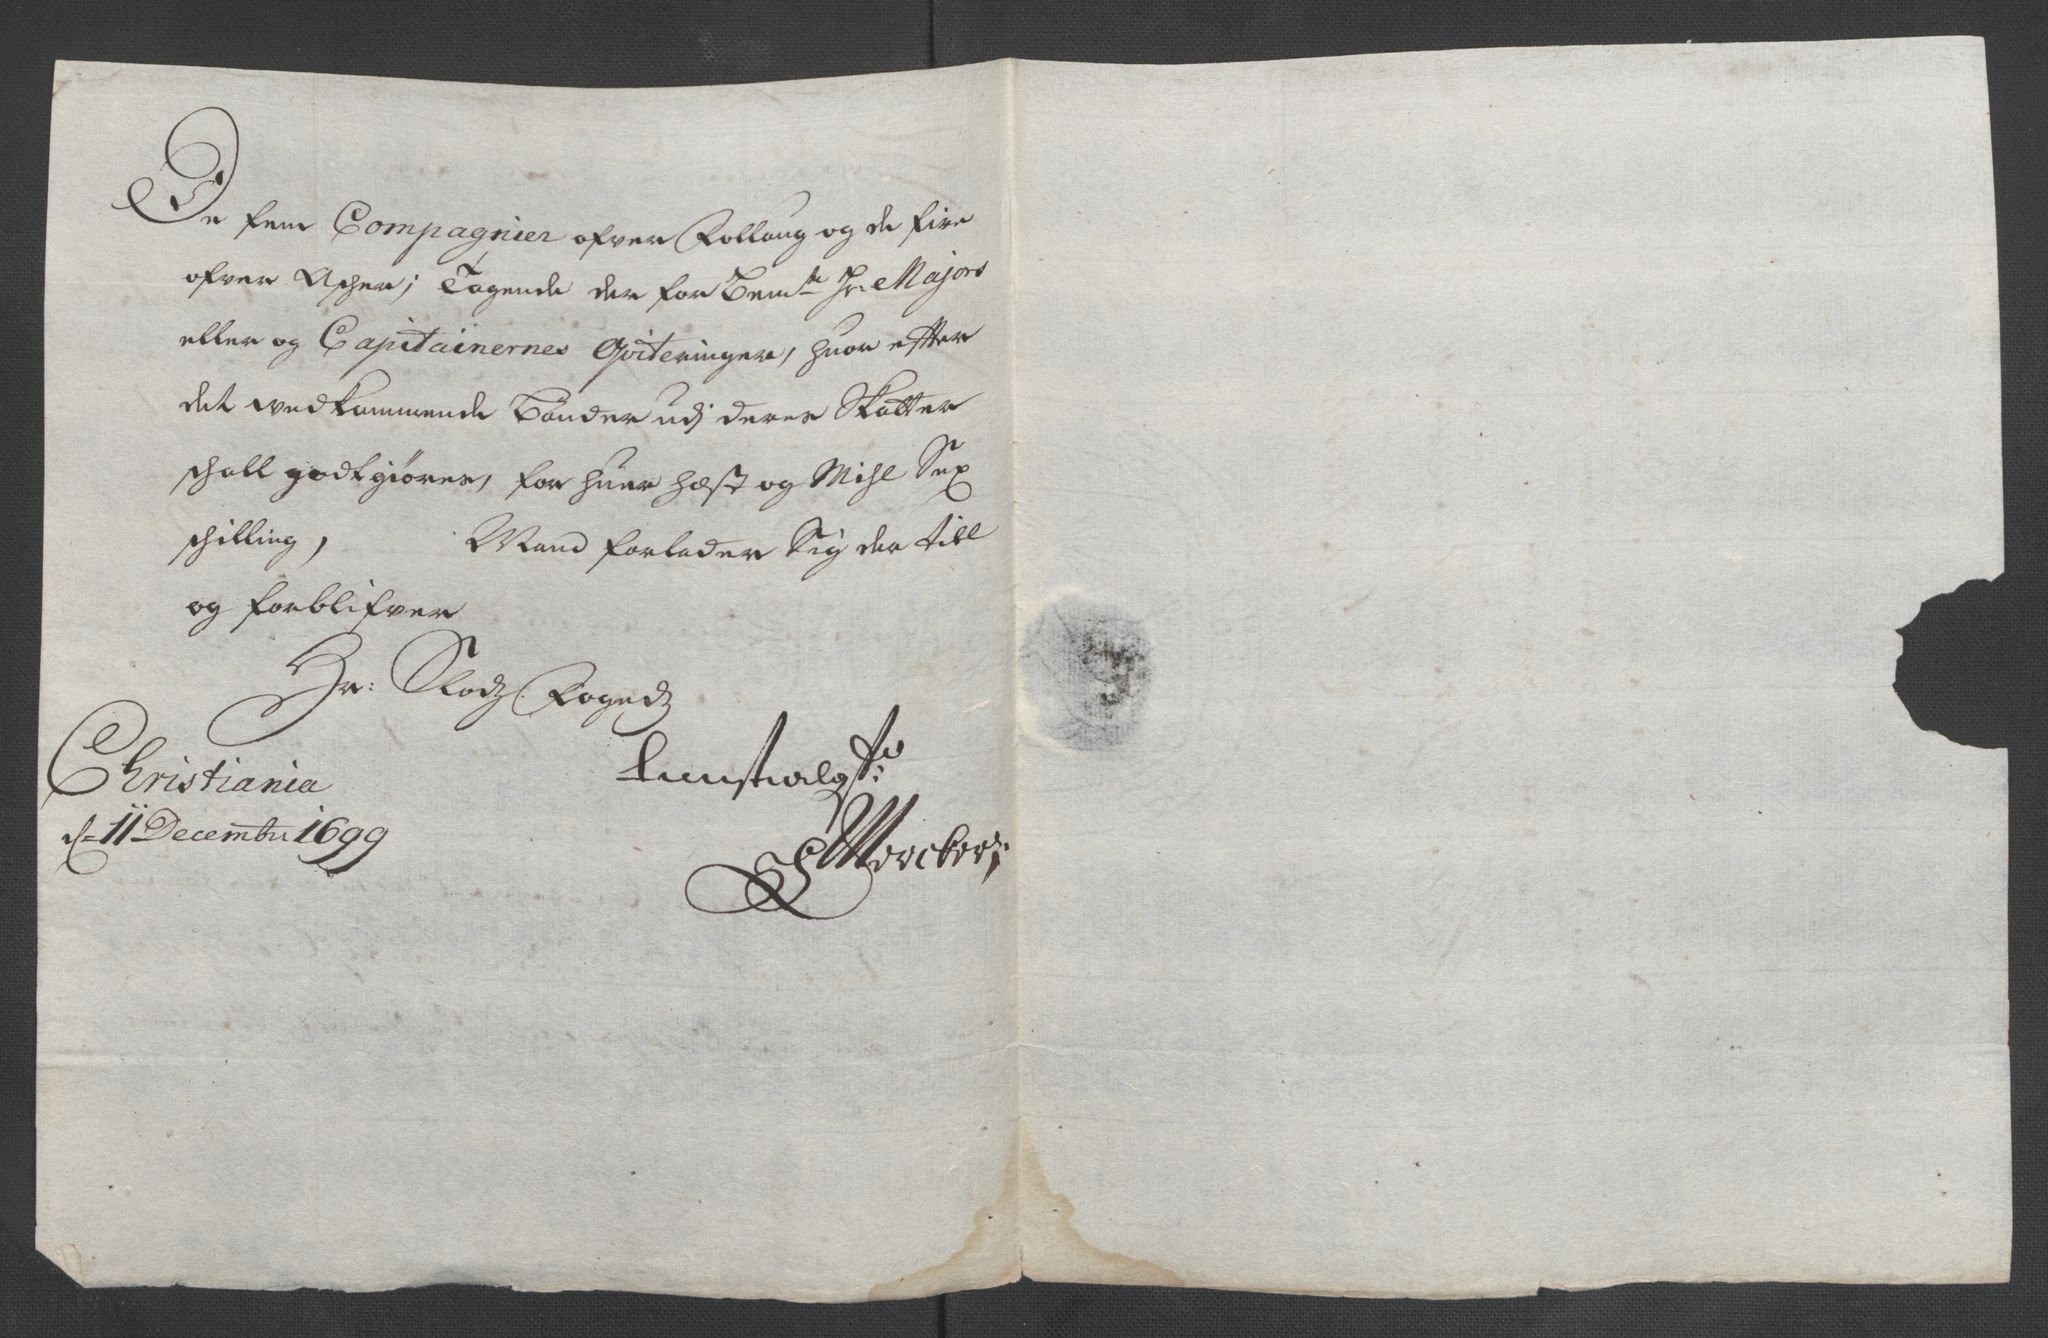 De fem Compagnier ofver Follaug og de fire
ofver Ascher; Tagende der for Bemte Hr: Majors
eller og Capitainernes Qviteringer, huor efter
det vedkommende Bønder udj deres Skatter
schall godtgiøres, for huer hæst og Mihl Sex
schilling, Mand forlader Sig der till
og forblifver
Hr: Slodz Fogedz
Christiania
dn 11 Decembr 1699
tienstvilgste
Mercker